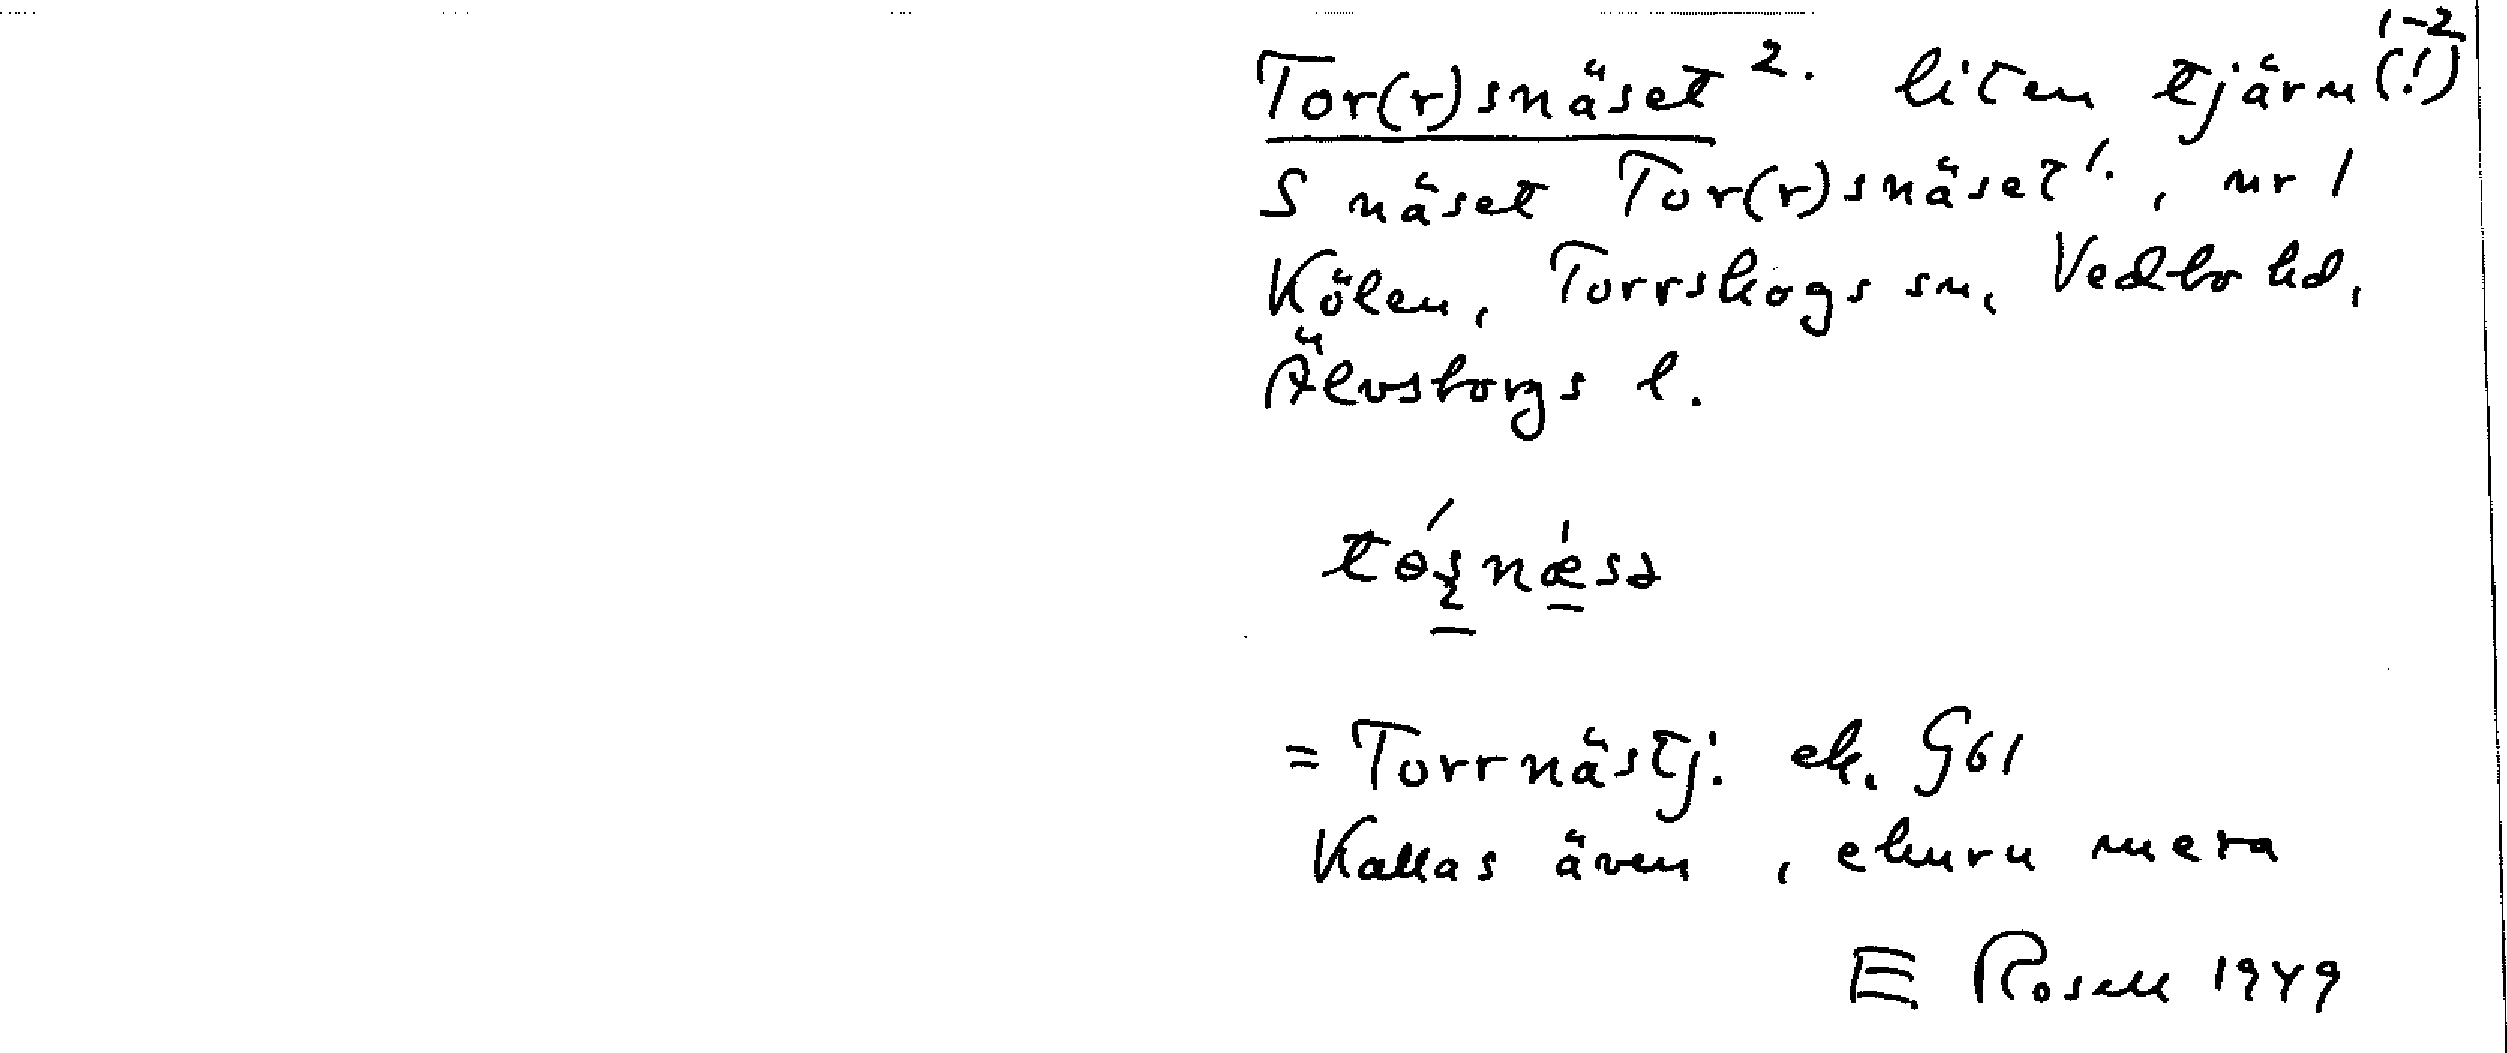 1-2
Tor(r)snäset 2. liten tjärn (!)
S näset Tor(r)snäset 1., nr 1
Kölen, Torrskogs sn, Vedbo hd,
Älvsborgs l.
= Torrnästj. ek. G61
Kallas även, ehuru mera
E Rosell 1949